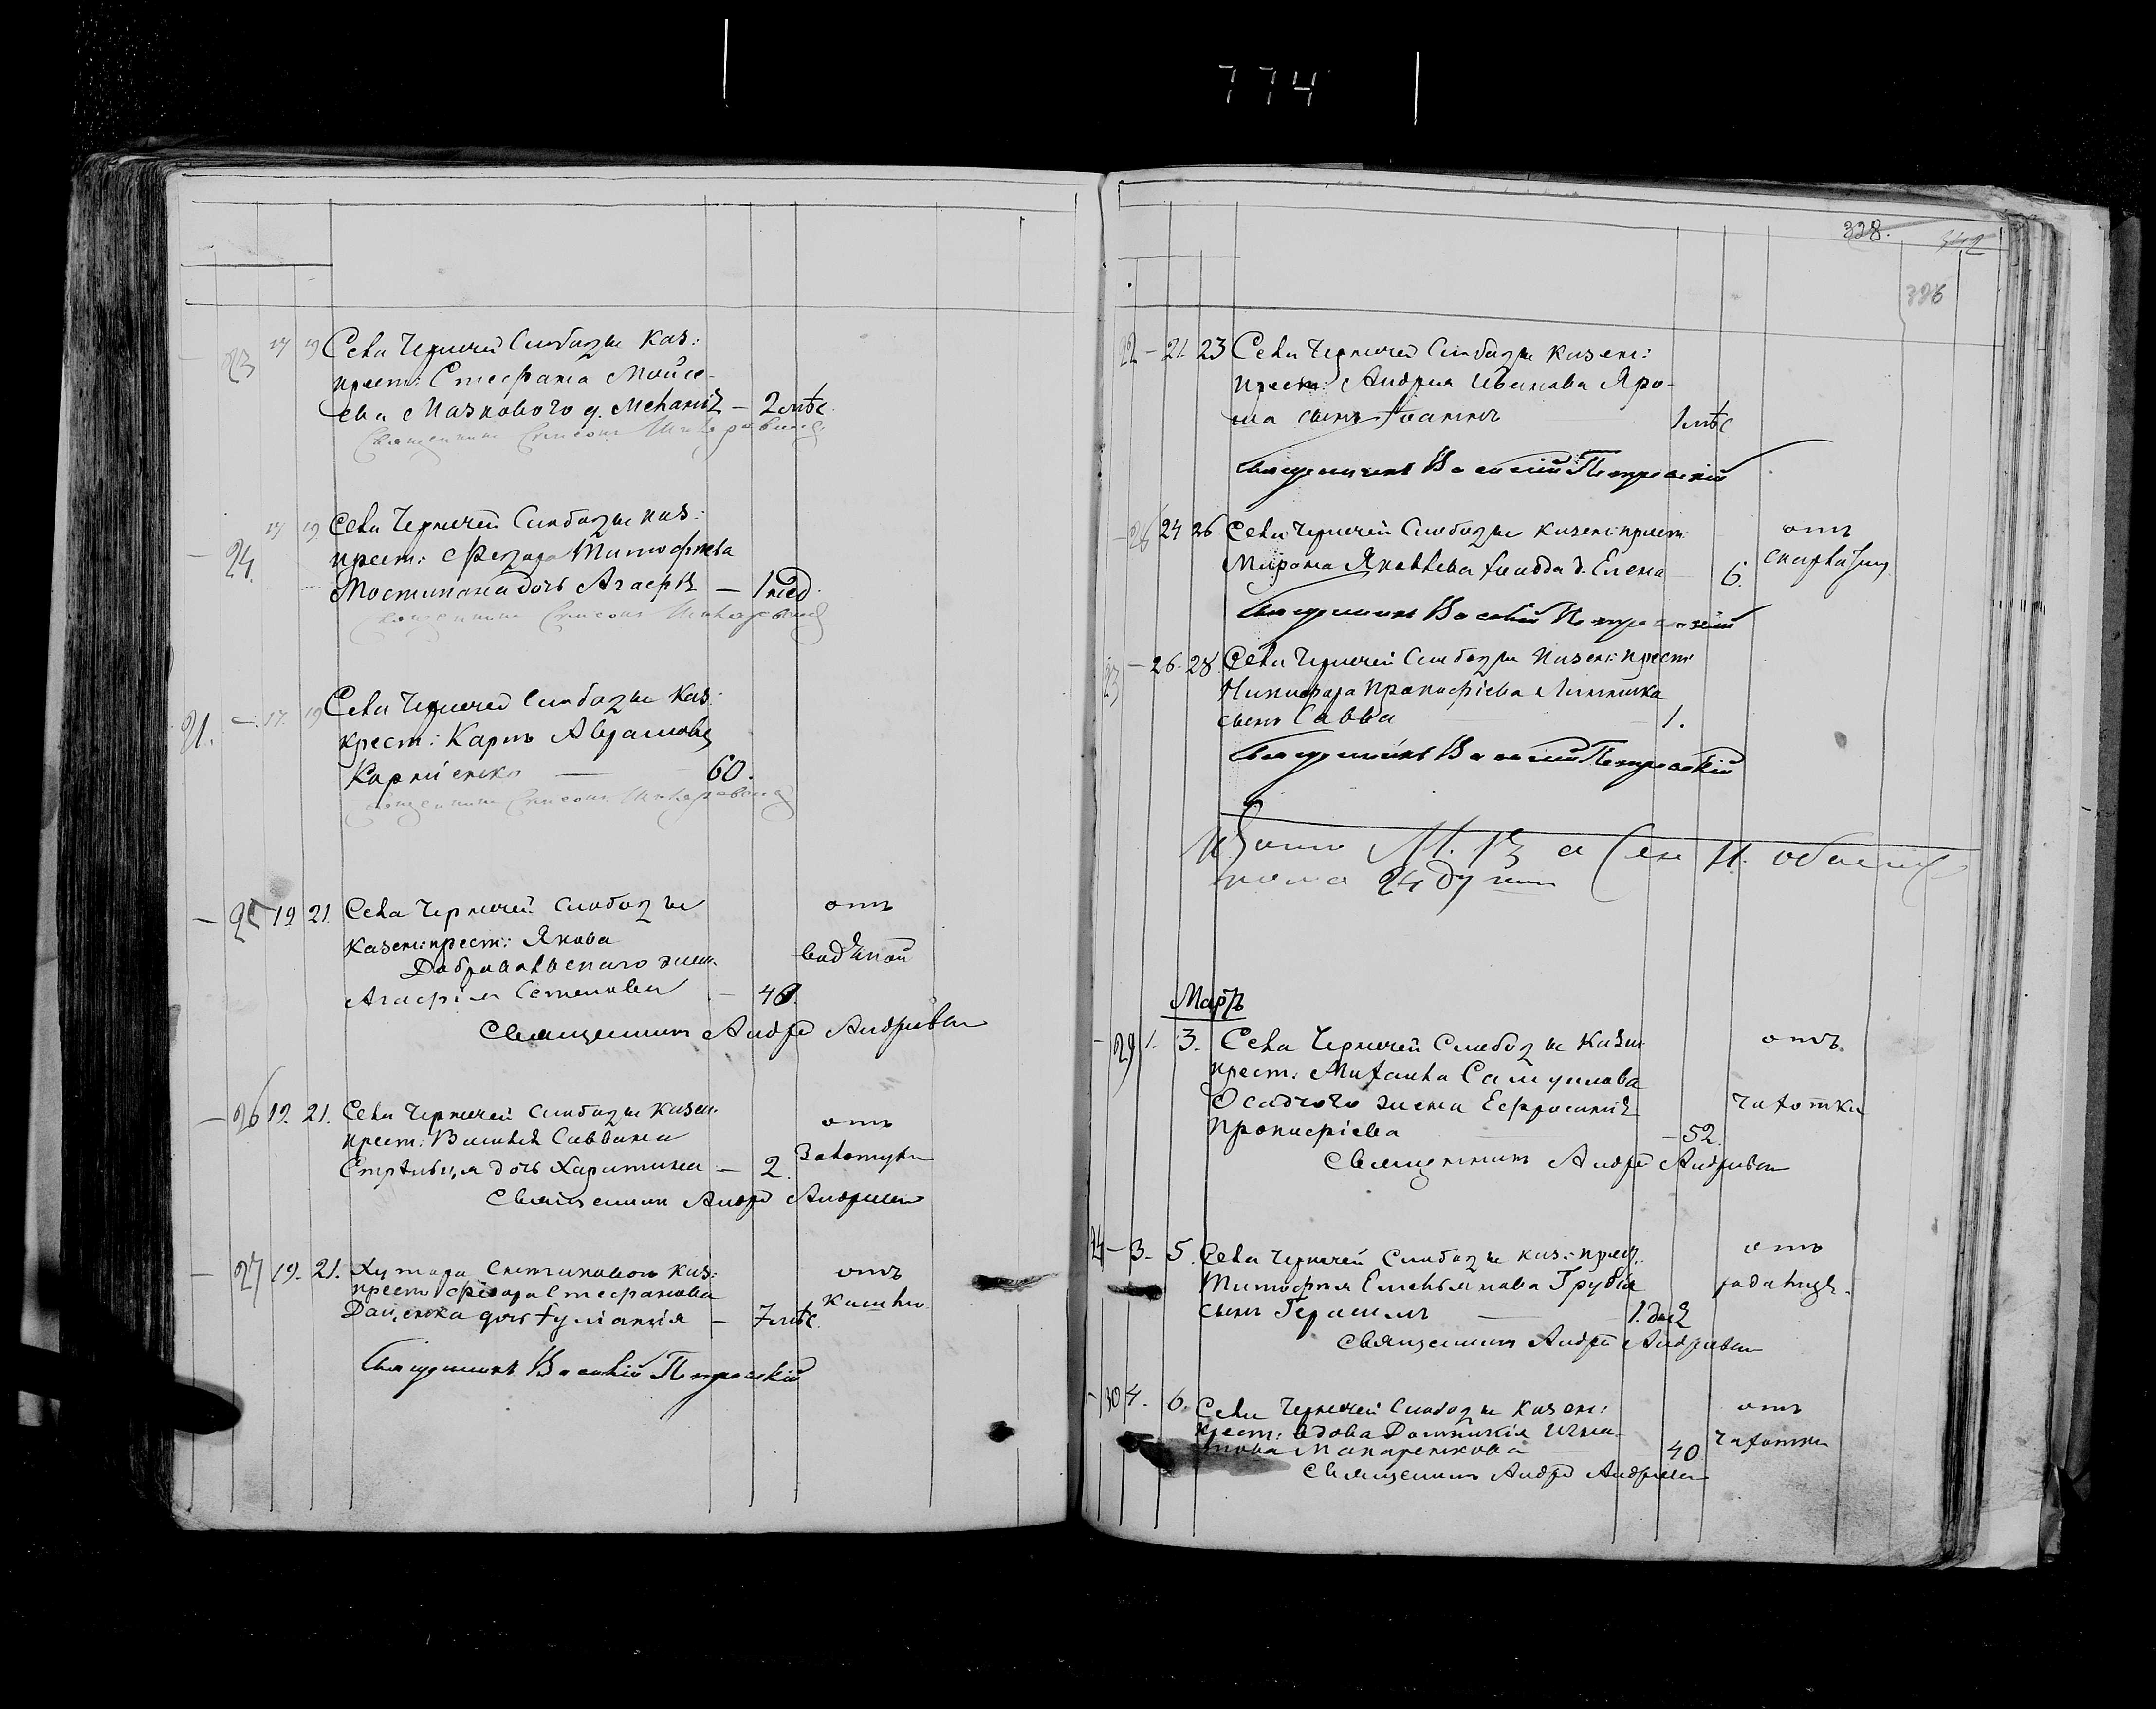 774
23 17 19 Села Черничей Слободы каз:
крест: Стефана Мойсе-
ева Мазкового д. Меланія — 2 мѣс.
Священникъ Симеонъ
24. 17 19 Села Черничей Слободы каз:
крест: Ѳедора Тимофѣева
дочь Агафія — 1 нед
Священникъ Симеонъ
21. — 17. 19 Села Черничей Слободы каз:
крест: Карпъ Аврамовъ
Карпенко — 60.
Священникъ Симеонъ
— 25 19 21. Села Черничей Слободы отъ
казен: крест: Якова водяной
Добровольскаго жена
Агафія Семенова — 40.
Священникъ Андрей Андріевъ
— 26 19. 21. Села Черничей Слободы казен.
крест: Василія Саввина отъ
дочь Харитина — 2.
Священникъ Андрей Андріевъ
— 27 19. 21. Хутора каз: отъ
крест: Ѳедора Стефанова кашлю
Даценка дочь Іуліанія — 7 мѣс.
Священникъ Василій Петровскій
328.
326
22 — 21. 23 Села Черничей Слободы казен:
крест: Андрея Иванова Яро-
ша сынъ Іоаннъ 1 мѣс
Священникъ Василій Петровскій
— 28 24 26 Села Черничей Слободы казен: крест: отъ
Мирона Яковлева д. Елена 6. скарлатины
Священникъ Василій Петровскій
23 — 26. 28 Села Черничей Слободы казен: крест:
Никифора Прокофіева Литвинка
сынъ Савва 1.
Священникъ Василій Петровскій
Итого М. 13 а Жен 11. обоего
пола 24 души
Мартъ
— 29 1. 3. Села Черничей Слободы казен отъ
крест: Михаила Самуилова
Осадчого жена Ефросинія чахотки
Прокофіева — 52.
Священникъ Андрей Андріевъ
24 — 3. 5. Села Черничей Слободы каз: крест: отъ
Тимофея Емельянова Грубія родимца.
сынъ Герасимъ 1. дня
Священникъ Андрей Андріевъ
— 30 4. 6. Села Черничей Слободы казен: отъ
крест: вдова Домникія Игна- чахотки
това Макаренкова 40
Священникъ Андрей Андріевъ